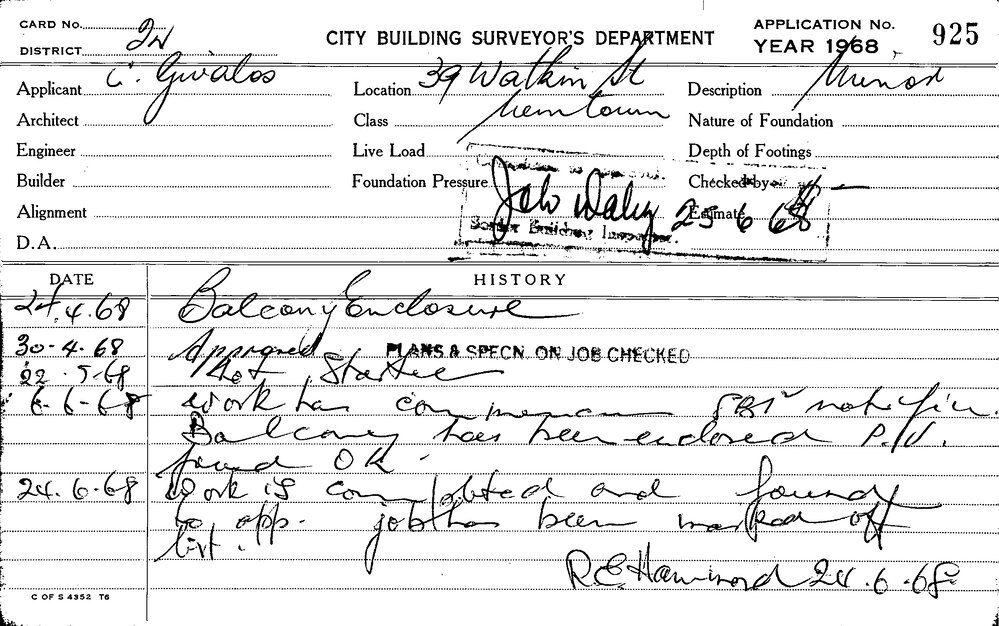 CARD No. 2W
DISTRICT
CITY BUILDING SURVEYOR'S DEPARTMENT
APPLICATION No.
YEAR 1968
925
Applicant C. Givalos
Location 39 Watkin St
Description Minor
Architect
Class Newtown
Nature of Foundation
Engineer
Live Load
Depth of Footings
Builder
Foundation Pressure
Checked by
Alignment
John Daley 25 6 68
Estimate
Senior Building Inspector.
D.A.
DATE
HISTORY
24.4.68 Balcony Enclosure
30-4-68 Approved PLANS & SPECN. ON JOB CHECKED
22-5-68 Not Started
6-6-68 work has
Balcony has been enclosed
found OK.
24.6.68 Work is completed and found
to app. job has been marked off
list.
R E Hammond 24.6.68
C OF S 4352 T6